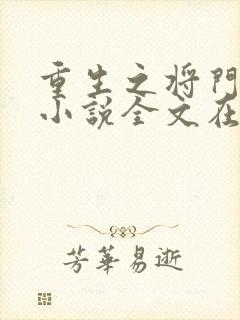 重生之将門
小説全文在
芳華易逝